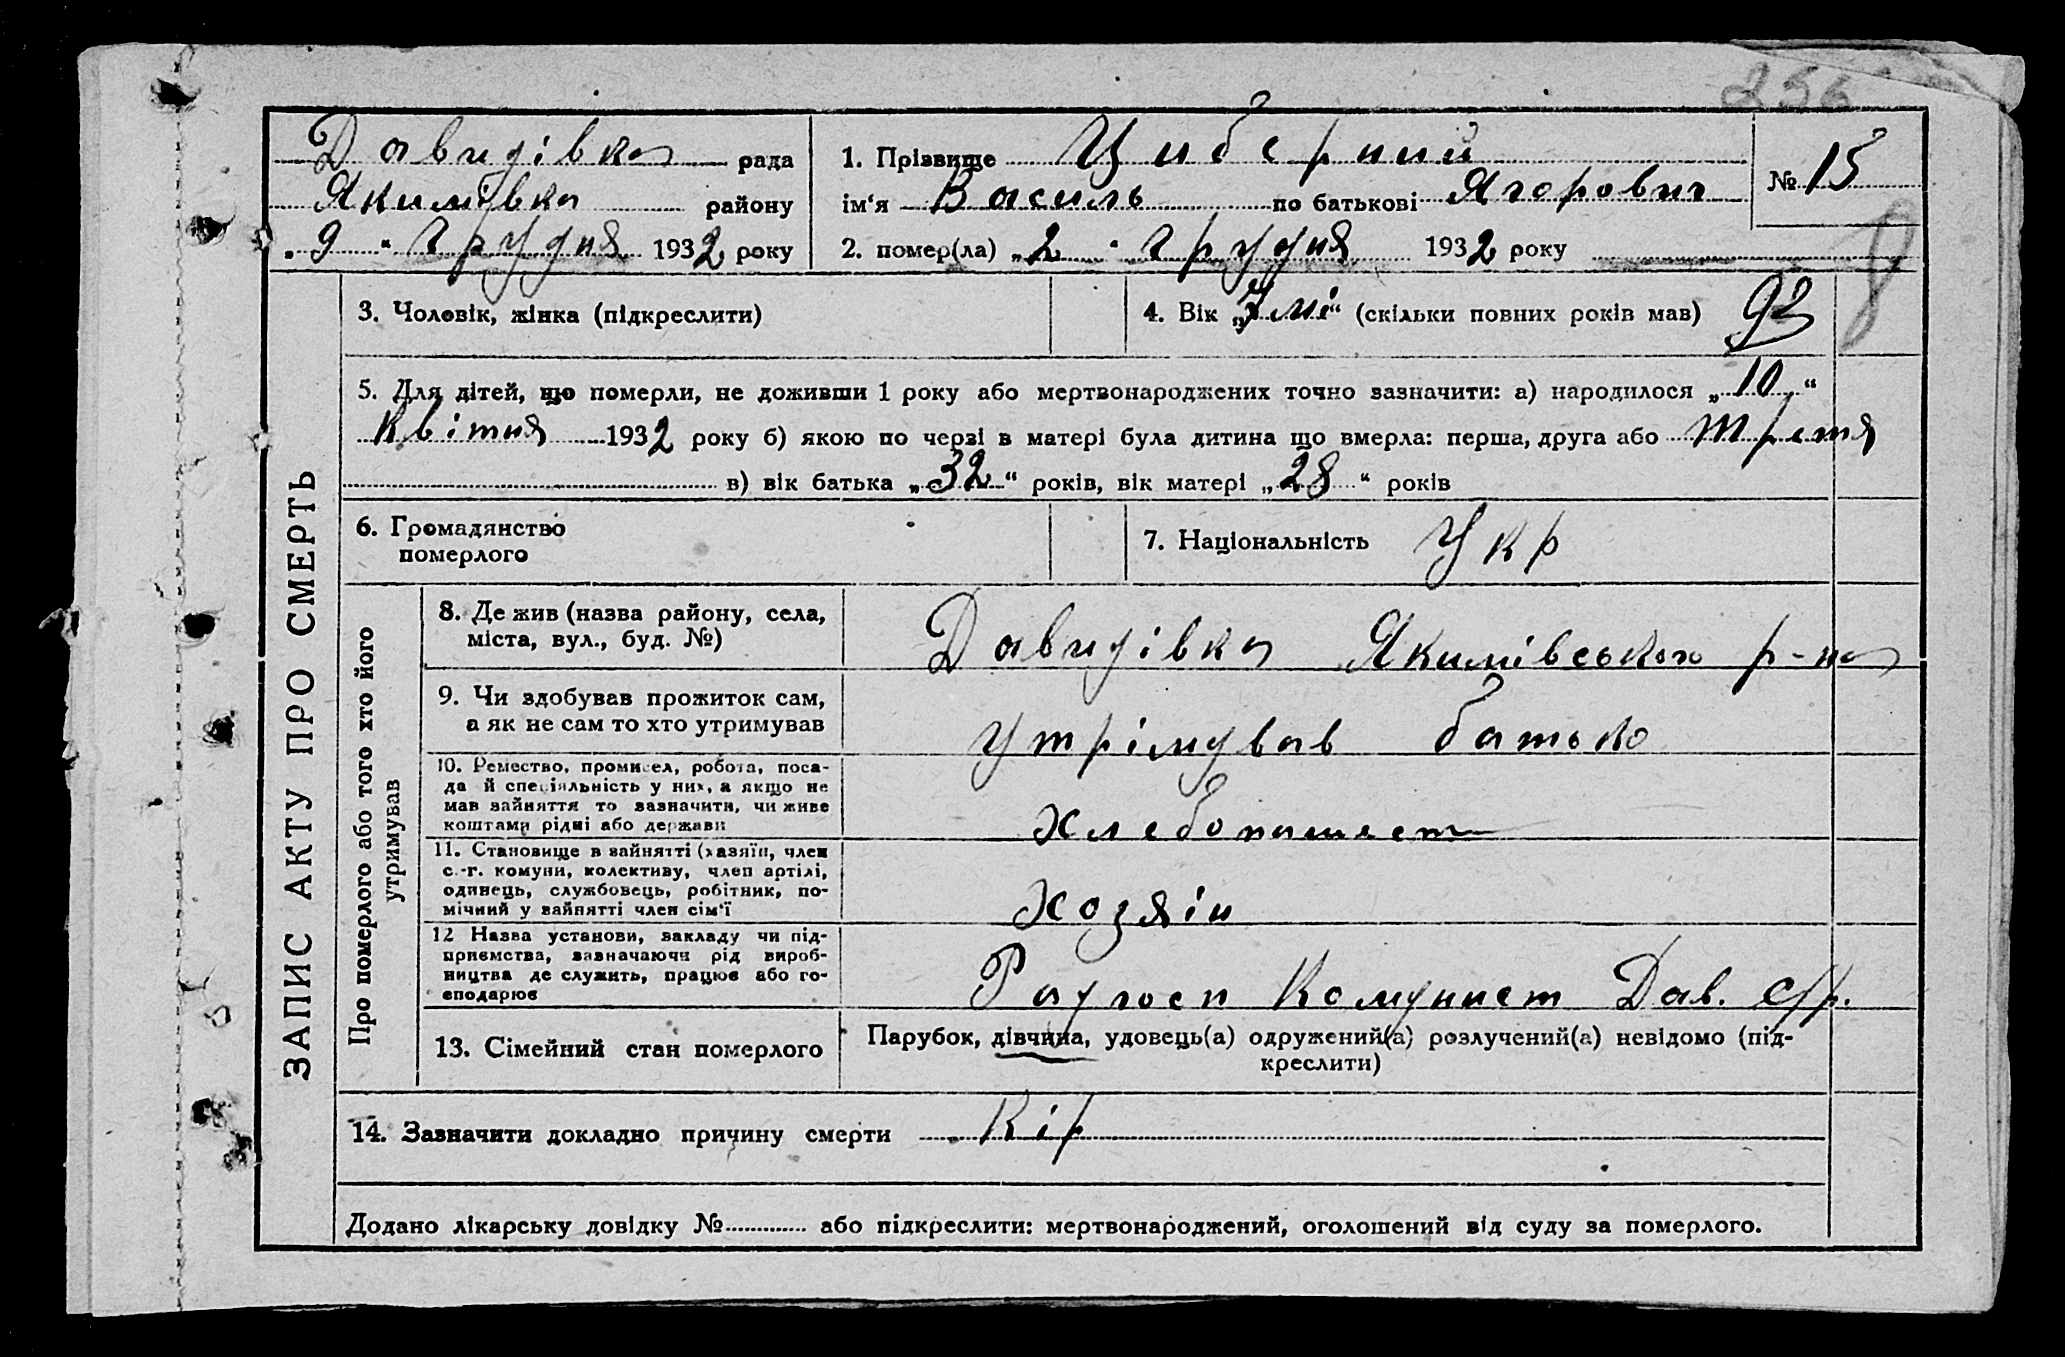 256
Давидівка рада
Якимівка району
„9“ грудня 1932 року
1. Прізвище Циберний
ім'я Василь по батькові Ягорович
№ 15
2. помер(ла) „2“ грудня 1932 року
3. Чоловік, жінка (підкреслити)
4. Вік „7 мі“ (скільки повних років мав) 92
5. Для дітей, що померли, не доживши 1 року або мертвонароджених точно зазначити: а) народилося „10“
квітня 1932 року б) якою по черзі в матері була дитина що вмерла: перша, друга або третя
в) вік батька „32“ років, вік матері „28“ років
6. Громадянство
померлого
7. Національність Укр
ЗАПИС АКТУ ПРО СМЕРТЬ
Про померлого або того хто його
утримував
8. Де жив (назва району, села,
міста, вул., буд. №)
Давидівка Якимівського р-на
9. Чи здобував прожиток сам,
а як не сам то хто утримував
Утрімував батько
10. Ремество, промисел, робота, поса-
да й спеціяльність у них, а якщо не
мав зайняття то зазначити, чи живе
коштами рідні або держави
Хлебопашест
11. Становище в зайнятті (хазяїн, член
с.-г. комуни, колективу, член артілі,
одинець, службовець, робітник, по-
мічний у зайнятті член сім'ї
Хозяін
12 Назва установи, закладу чи під-
приємства, зазначаючи рід вироб-
ництва де служить, працює або го-
сподарює
Радгосп Комунист Дав. с/р.
13. Сімейний стан померлого
Парубок, дівчина, удовець(а) одружений(а) розлучений(а) невідомо (під-
креслити)
14. Зазначити докладно причину смерти Кір
Додано лікарську довідку № або підкреслити: мертвонароджений, оголошений від суду за померлого.